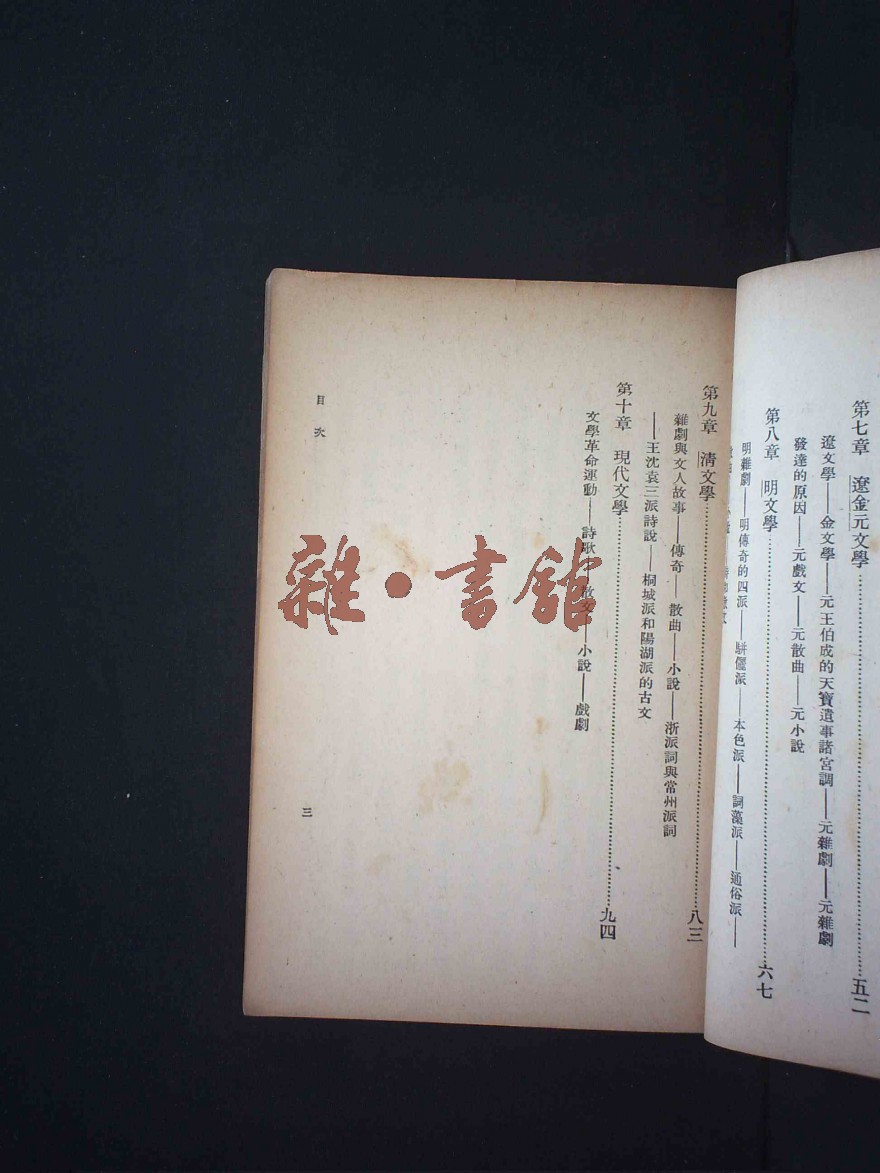 第七章　遼金元文學……五二
遼文學——金文學——元王伯成的天寶遺事諸宮調——元雜劇——元雜劇
發達的原因——元戲文——元散曲——元小說
第八章　明文學……六七
明雜劇——明傳奇的四派——駢儷派——本色派——詞藻派——通俗派——
第九章　清文學……八三
雜劇與文人故事——傳奇——散曲——小說——浙派詞與常州派詞
——王沈袁三派詩說——桐城派和陽湖派的古文
第十章　現代文學……九四
文學革命運動——詩歌——散文——小說——戲劇
目次
三
雜·書館